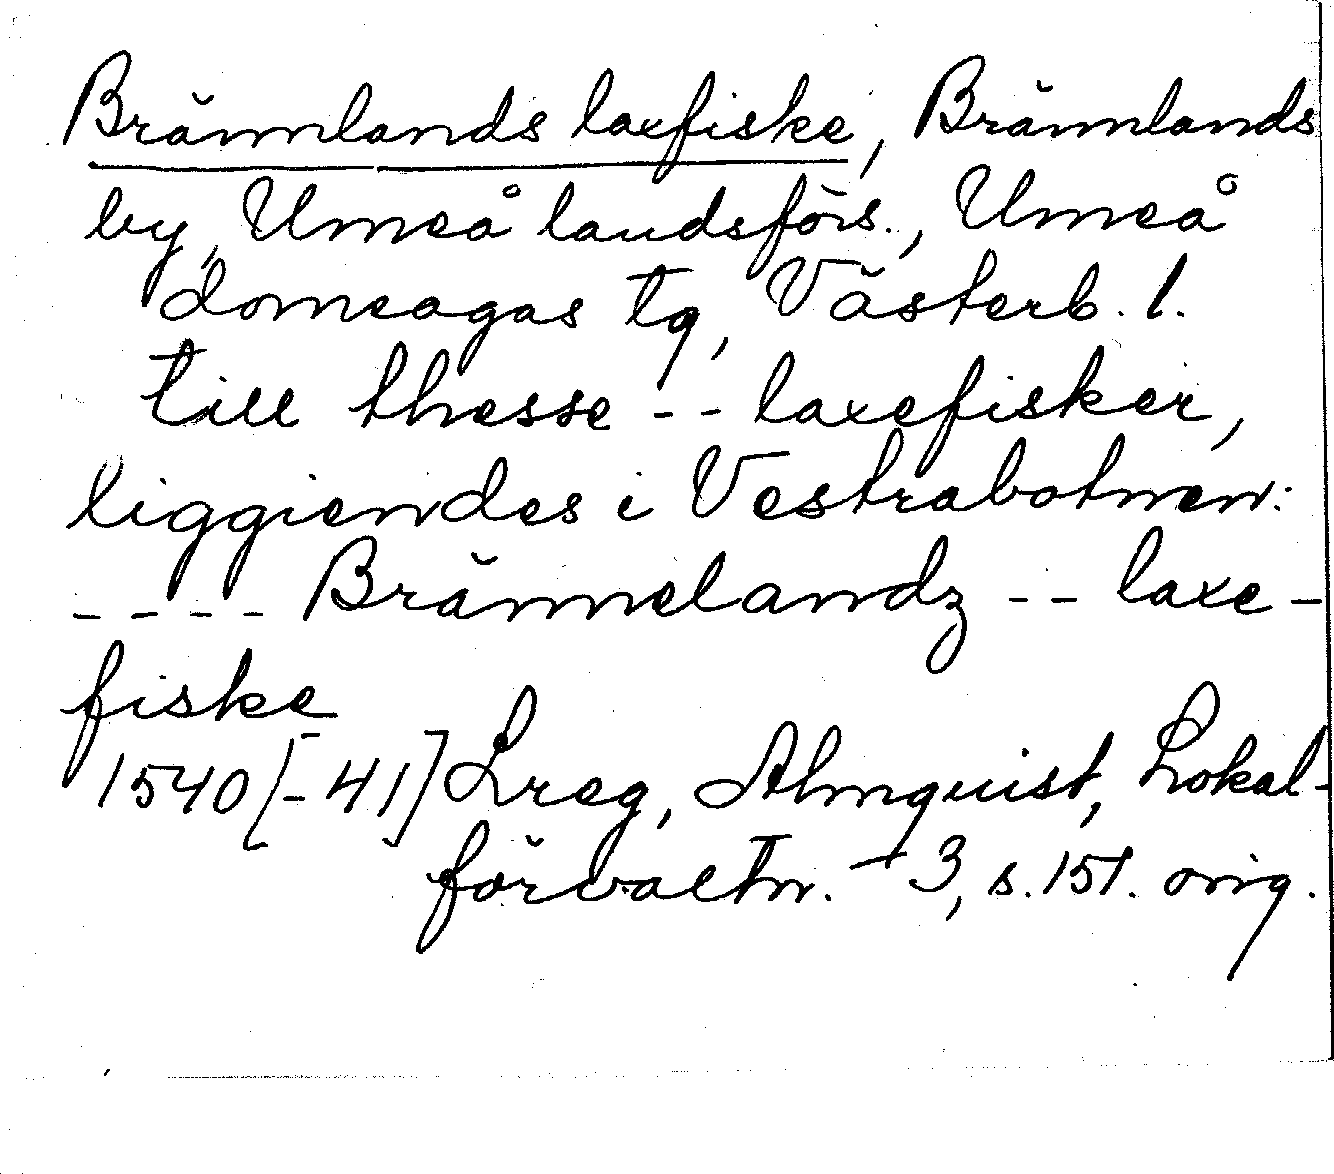 Brännlands laxfiske, Brännlands
by, Umeå landsförs., Umeå
domsagas tg, Västerb. l.
till thesse -- laxefisker,
liggiendes i Vestrabotnen:
---- Brännelandz -- laxe-
fiske
1540[-41] Lreg, Almquist, Lokal-
förvaltn. 3, s. 151. orig.